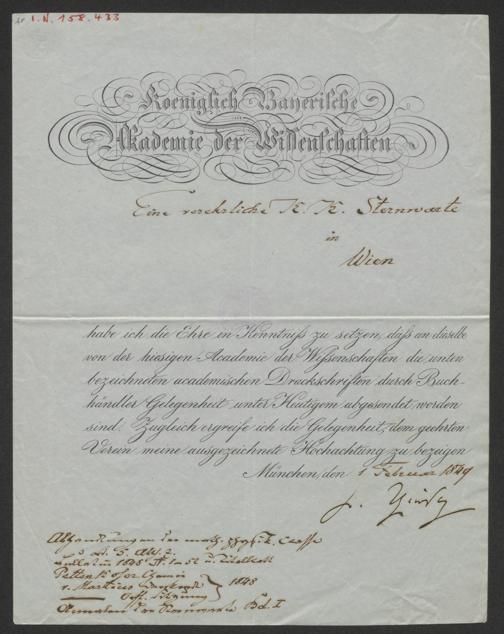 I.N. 158.433
Koeniglich Bayerische
Akademie der Wissenschaften
Eine verehrliche K. K. Sternwarte
in
Wien
habe ich die Ehre in Kenntniß zu setzen, daß an dieselbe
von der hiesigen Academie der Wißenschaften die unten
bezeichneten academischen Druckschriften durch Buch-
händler Gelegenheit unter Heutigem abgesendet worden
sind. Zugleich ergreife ich die Gelegenheit, dem geehrten
Verein meine ausgezeichnete Hochachtung zu bezeigen
München, den 1 Februar 1849
Abhandlungen der math. phys. Classe
5 Bd. 3. Abth.
1848
v. Martius
Annalen der Sternwarte Bd. I